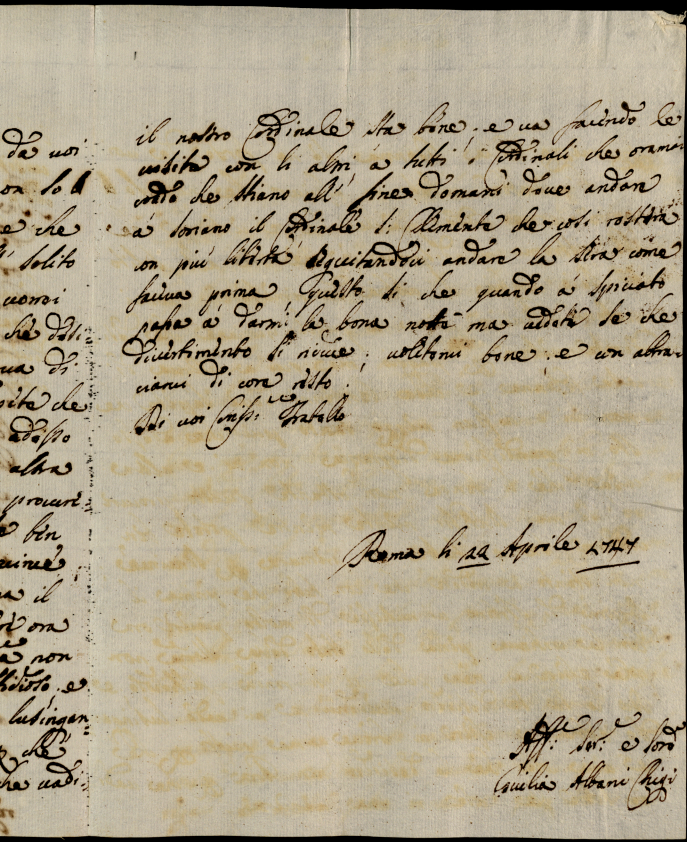 da voi
on so
e che
solito
vorrei
che desi:
va di
che
adesso
altra
procuri:
e ben
a il
ri ora
a non
e
lusingan:
che
che vadi:
il nostro Cardinale sta bene, e va facendo le
visite con li altri a tutti i Cardinali che oramai
credo che stiano all' fine domani deve andare
a Soriano il Cardinale S: Clemente che cosi restera
con più libertà seguitandoci andare la sera come
faceva prima, Questo si che quando a spicciato
passa a darmi la bona notte ma vedete se che
divertimento si riceve; voletemi bene, e con abbra:
ciarvi di core resto
Di voi Cariss: Fratello
Roma li 22 Aprile 1747
Aff: Ser: e Sorella
Cecilia Albani Chigi